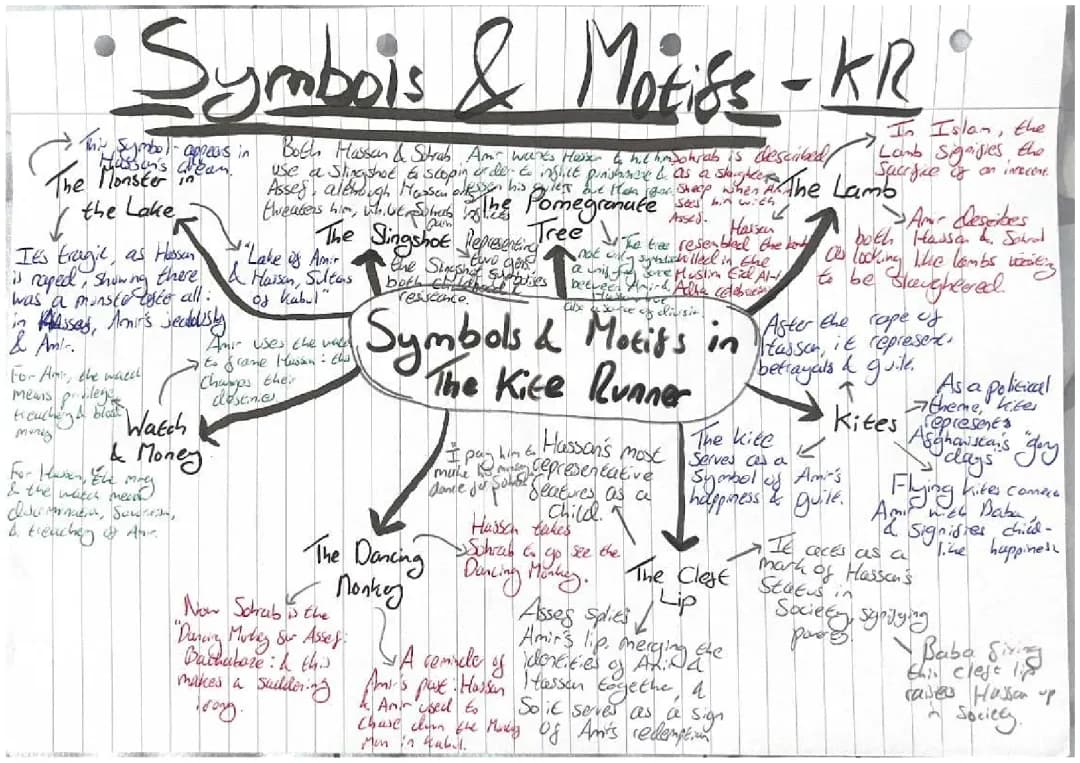 Symbols & Motifs - KR
This symbol appears in
Hassan's dream.
The Monster in
the Lake
It's tragic, as Hassan
is raped, showing there
was a monster after all:
in Assef, Amir's jealousy
& Amir.
"Lake of Amir
& Hassan, Sultans
of Kabul"
Both Hassan & Sohrab
use a Slingshot to stop
Assef, although Hassan only
threatens him, whilst Sohrab inflicts
pain
The Slingshot
Representing
two gens,
the Slingshot symbolises
both childhood &
resistance.
Amir wants Hassan to hit him
in order to inflict punishment &
lessen his guilt
The Pomegranate
Tree
The tree
not only symbolises
a unifying force
between Amir &
Hassan but
also a source of division
Sohrab is described
as a slaughter
sheep when Amir
sees him with
Assef.
The Lamb
In Islam, the
Lamb signifies the
Sacrifice of an innocent.
Hassan
resembled the lamb
killed in the
Muslim Eid Al-
Adha celebration
Amir describes
both Hassan & Sohrab
as looking like lambs waiting
to be slaughtered.
Symbols & Motifs in
The Kite Runner
Amir uses the watch
to frame Hassan: this
changes their
destinies
For Amir, the watch
means privilege,
treachery & blood
money
Watch
& Money
For Hassan, the money
& the watch mean
discrimination,
& treachery of Amir.
After the rape of
Hassan, it represents
betrayals & guilt.
Kites
As a political
theme, kites
represents
Afghanistan's "glory
days"
The kite
serves as a
Symbol of Amir's
happiness & guilt.
Flying kites connects
Amir with Baba,
& signifies child-
like happiness
I pay him to
make his monkey
dance for Sohrab
The Dancing
Monkey
Hassan takes
Sohrab to go see the
Dancing Monkey.
Now Sohrab is the
"Dancing Monkey for Assef:
Bachabaze: & this
makes a saddening
irony.
A reminder of
Amir's past: Hassan
& Amir used to
chase down the Monkey
Man in Kabul.
Hassan's most
representative
features as a
child.
The Cleft
Lip
It acts as a
mark of Hassan's
Status in
Society, signifying
poverty.
Assef splits
Amir's lip, merging the
identities of Amir &
Hassan together, &
So it serves as a sign
of Amir's redemption
Baba fixing
this cleft lip
raises Hassan up
in Society.